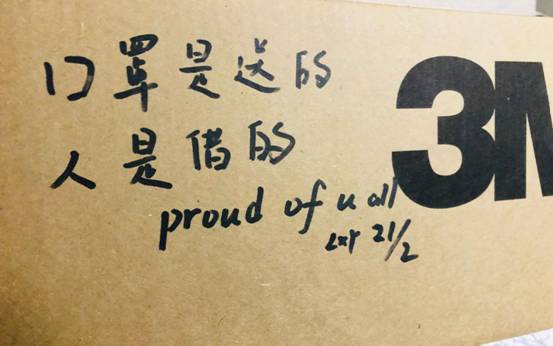 口罩是送的
3M
人是借的
proud of u all
lxr 21/2